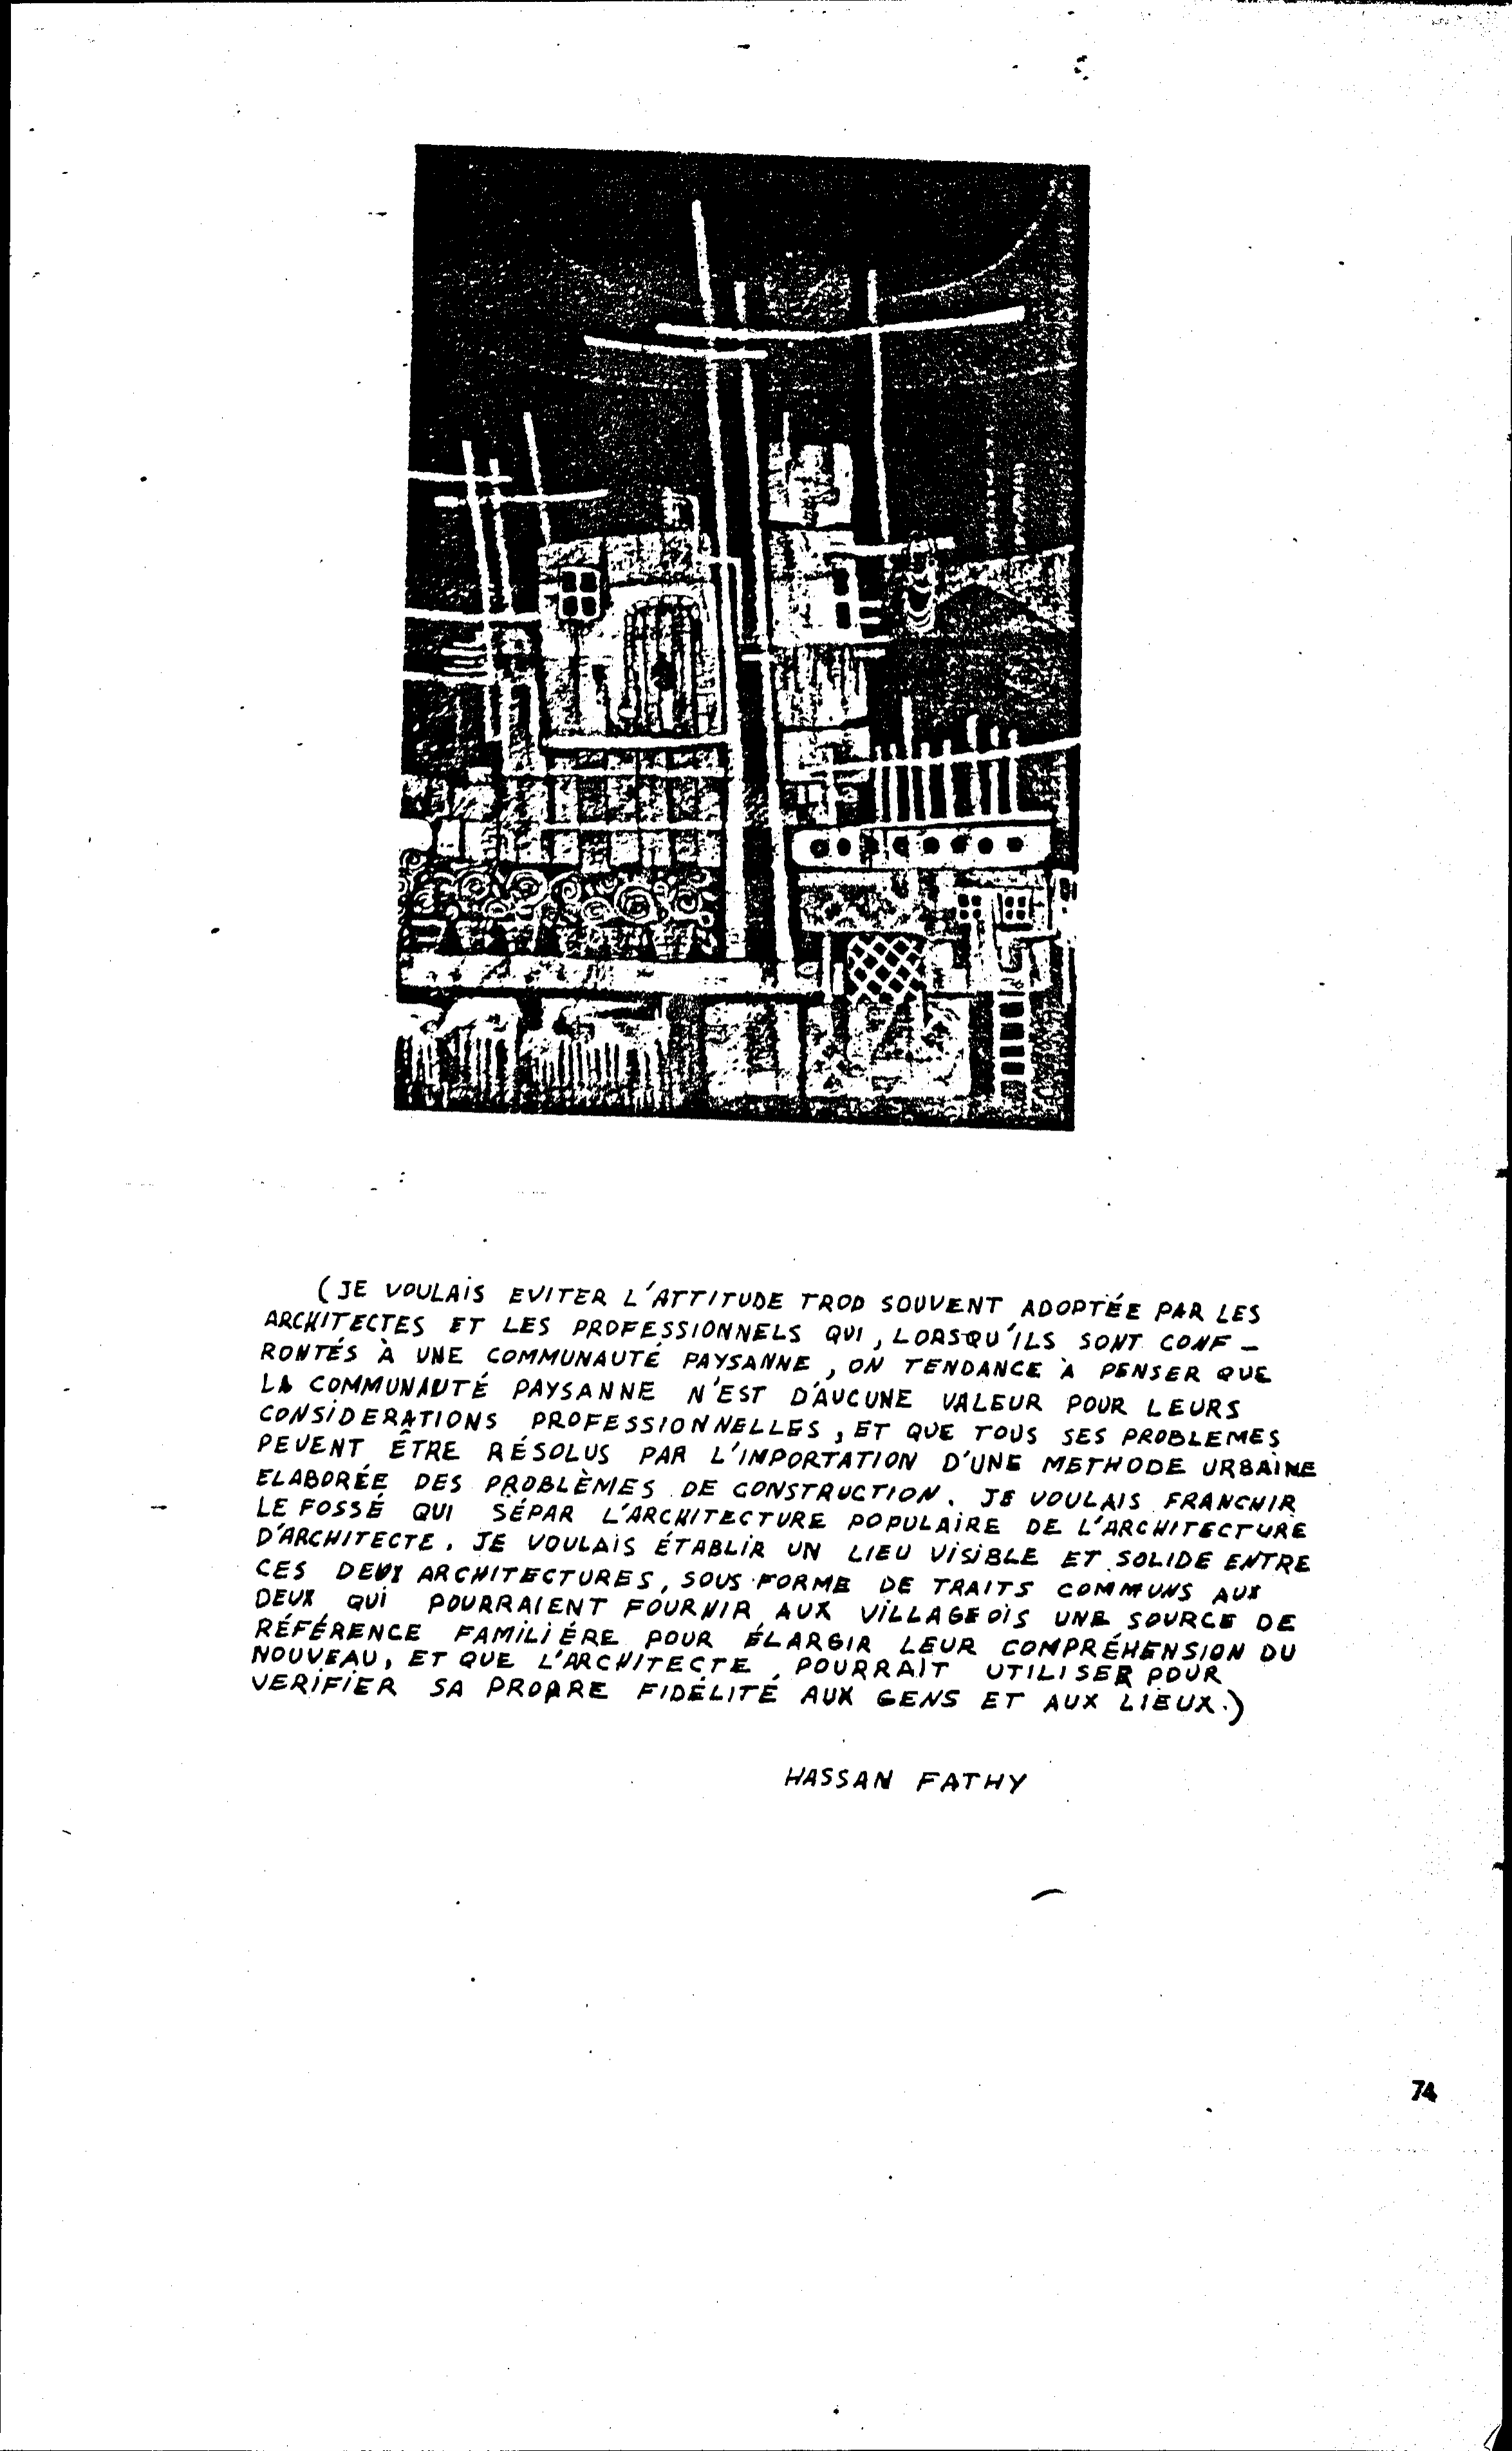 (JE VOULAIS EVITER L'ATTITUDE TROP SOUVENT ADOPTÉE PAR LES
ARCHITECTES ET LES PROFESSIONNELS QUI, LORSQU'ILS SONT CONF-
RONTÉS À UNE COMMUNAUTÉ PAYSANNE, ON TENDANCE À PENSER QUE
LA COMMUNAUTÉ PAYSANNE N'EST D'AUCUNE VALEUR POUR LEURS
CONSIDERATIONS PROFESSIONNELLES, ET QUE TOUS SES PROBLEMES
PEUVENT ÊTRE RÉSOLUS PAR L'IMPORTATION D'UNE METHODE URBAINE
ELABORÉE DES PROBLÈMES DE CONSTRUCTION. JE VOULAIS FRANCHIR
LE FOSSÉ QUI SÉPAR L'ARCHITECTURE POPULAIRE DE L'ARCHITECTURE
D'ARCHITECTE. JE VOULAIS ÉTABLIR UN LIEU VISIBLE ET SOLIDE ENTRE
CES DEUX ARCHITECTURES, SOUS FORME DE TRAITS COMMUNS AUX
DEUX QUI POURRAIENT FOURNIR AUX VILLAGEOIS UNE SOURCE DE
RÉFÉRENCE FAMILIÉRE POUR ÉLARGIR LEUR COMPRÉHENSION DU
NOUVEAU, ET QUE L'ARCHITECTE POURRAIT UTILISER POUR
VERIFIER SA PROPRE FIDÉLITÉ AUX GENS ET AUX LIEUX.)
HASSAN FATHY
74